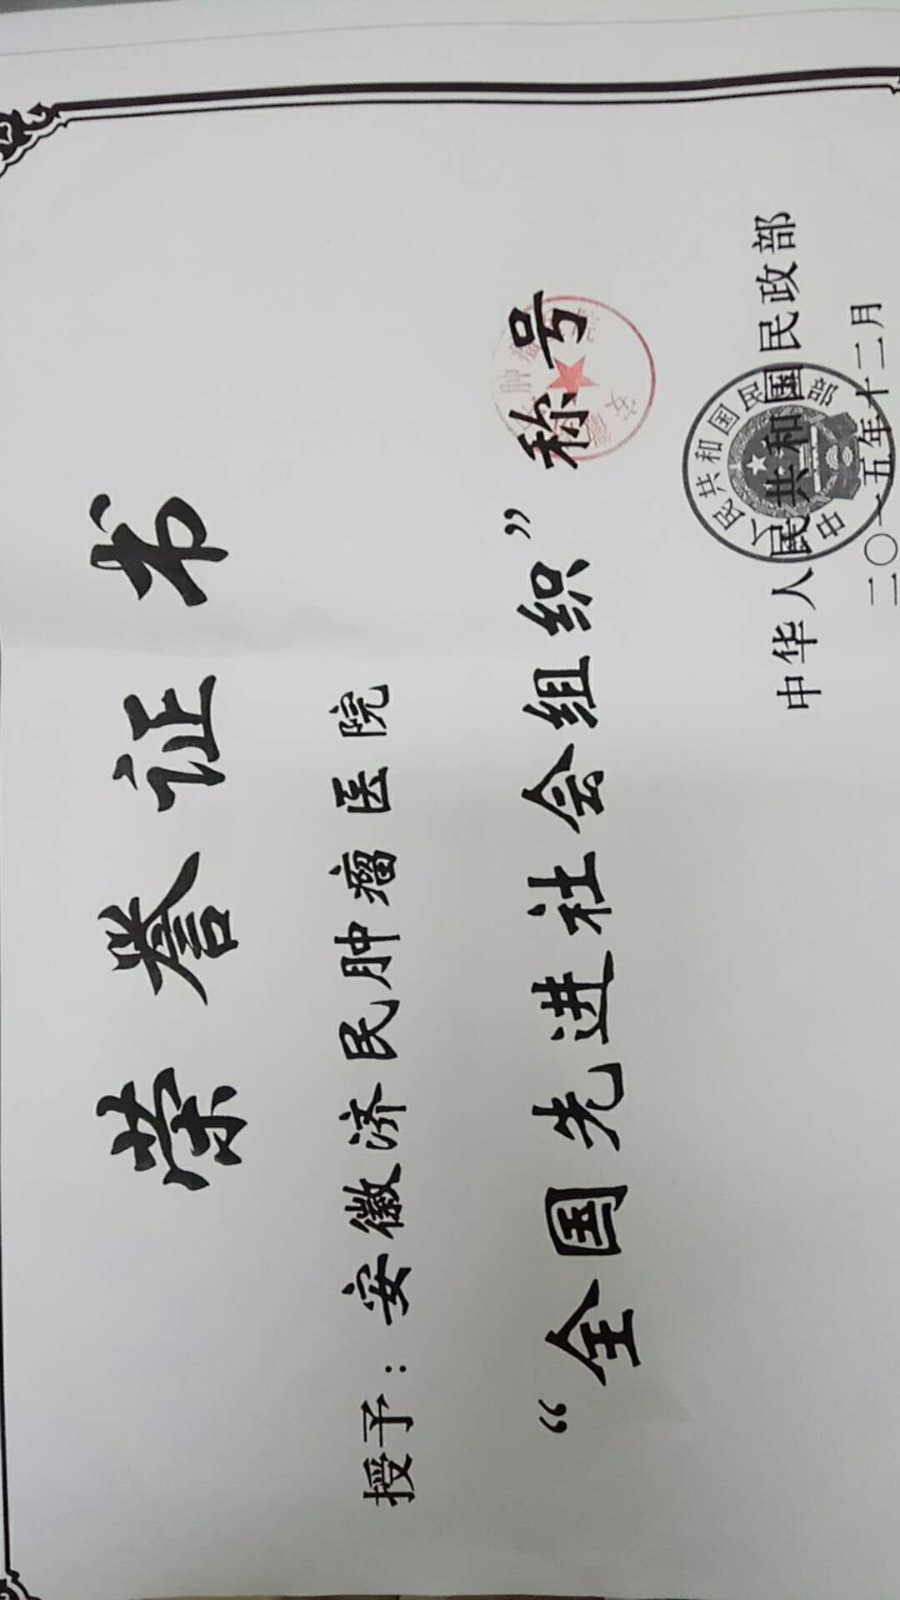 荣誉证书
授予：安徽济民肿瘤医院
“全国先进社会组织”称号
中华人民共和国民政部
二〇一五年十二月